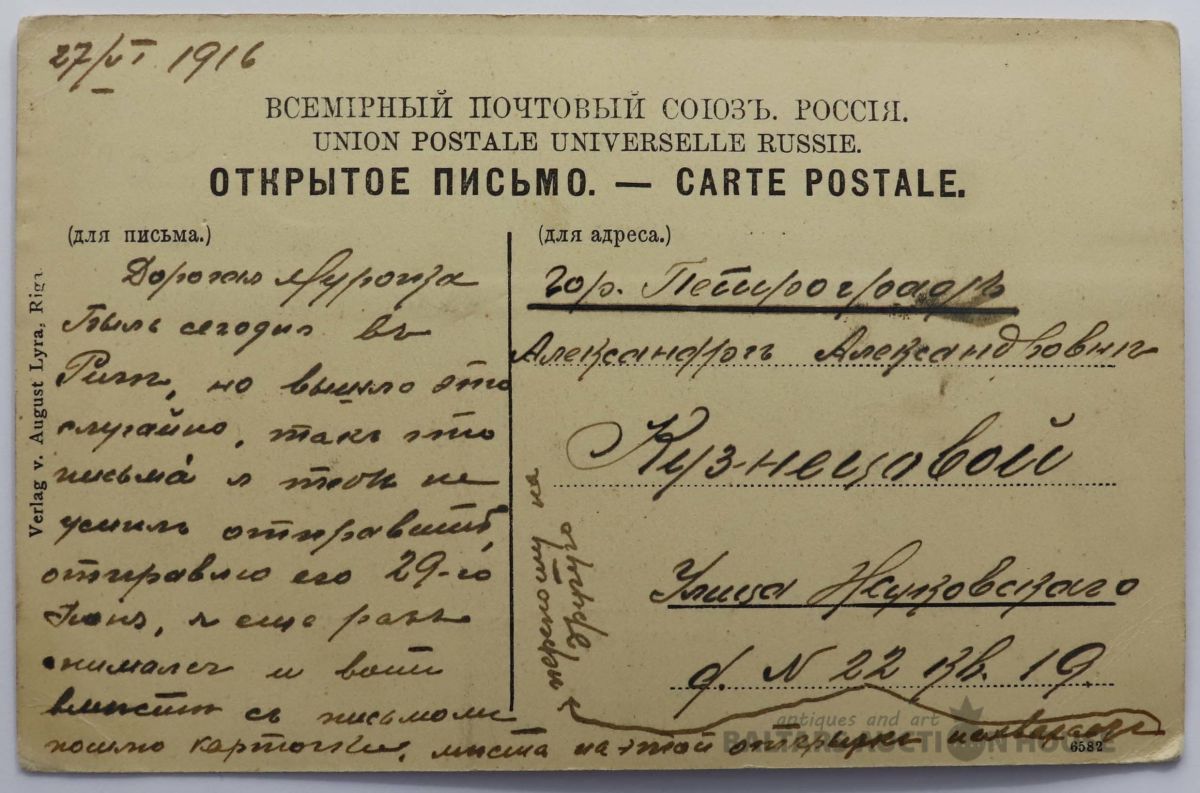 27/VI 1916
ВСЕМІРНЫЙ ПОЧТОВЫЙ СОЮЗЪ. РОССІЯ.
UNION POSTALE UNIVERSELLE RUSSIE.
ОТКРЫТОЕ ПИСЬМО. — CARTE POSTALE.
(для письма.)
Дорогая Шурочка
Былъ сегодня въ
Ригѣ, но вышло это
случайно, такъ что
письма я не
успѣлъ отправить,
отправлю его 29-го
Іюня, я еще разъ
снимался и вотъ
вмѣстѣ съ письмомъ
пошлю карточки, мѣста на этой открыткѣ
нѣжному на
(для адреса.)
Гор. Петроградъ
Александрѣ Александровнѣ
Кузнецовой
Улица Жуковскаго
д. N 22 кв. 19.
Verlag v. August Lyra, Riga
6582
antiques and art
BALTIC AUCTION HOUSE